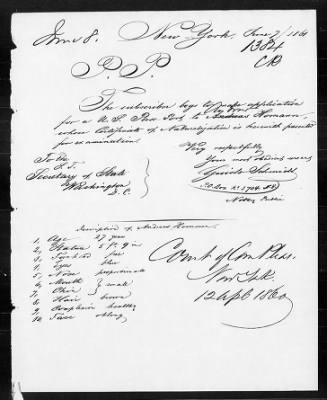 June 8. New York, June 7/1861
1384
CB
P. P.
The subscriber begs to make application
for a U. S. Pass Port to Andreas Homann
whose Certificate of Naturalization is herewith presented
for examination.
Very respectfully
Your most obedient serv
Schmidt
P.O. Box No 1704. NY
Notary Public
To the
Secretary of State
Washington
D.C.
Description of Andreas Homann
1, Age 27 year
2, Statur 5 ft 9 in
3, Forehead
4, Eyes blue
5, Nose proportionate
6, Mouth } small
7, Chin
8, Hair brown
9, Complexion healthy
10, Face oblong
Court of Com Pleas.
New York.
12 apl 1860